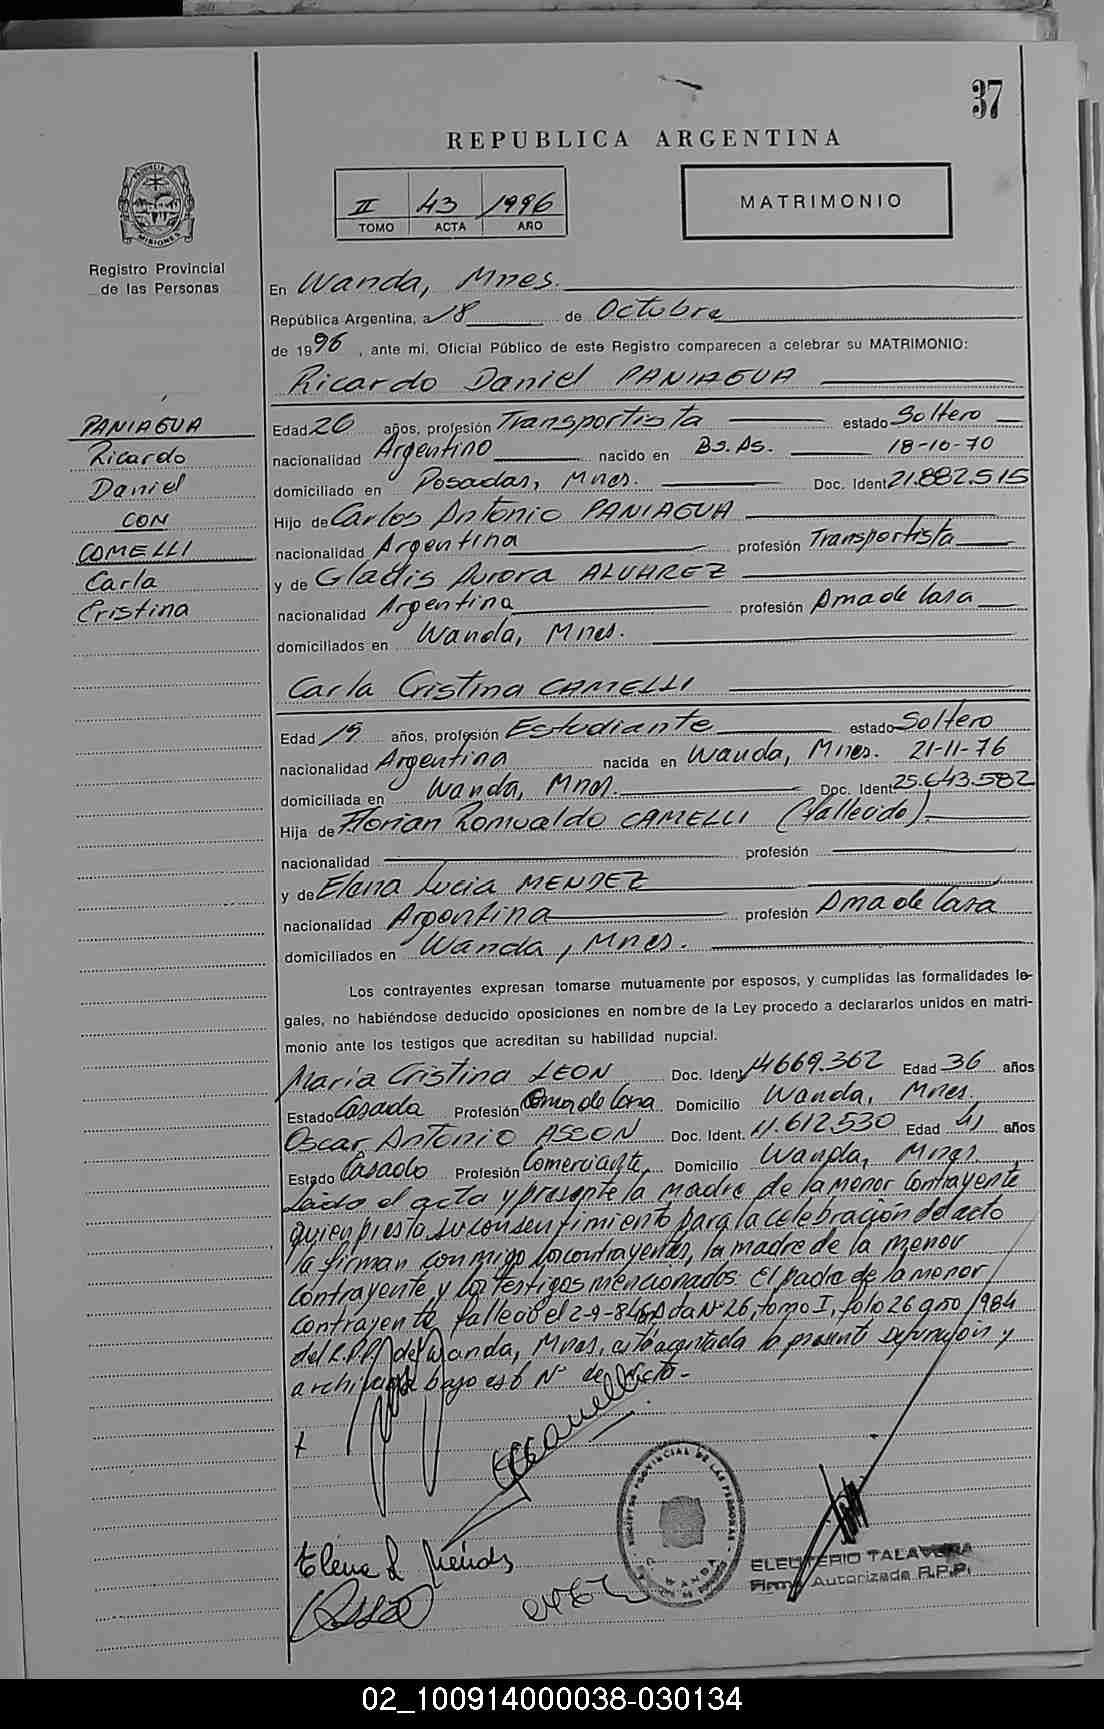 37
REPUBLICA ARGENTINA
II 43 1996
TOMO ACTA AÑO
MATRIMONIO
PROVINCIA DE MISIONES
Registro Provincial
de las Personas
En Wanda, Mnes.
República Argentina, a 18 de Octubre
de 1996, ante mi, Oficial Público de este Registro comparecen a celebrar su MATRIMONIO:
Ricardo Daniel PANIAGUA
PANIAGUA
Ricardo
Daniel
CON
COMELLI
Carla
Cristina
Edad 26 años, profesión Transportista estado Soltero
nacionalidad Argentino nacido en Bs. As. 18-10-70
domiciliado en Posadas, Mnes. Doc. Ident 21.882.515
Hijo de Carlos Antonio PANIAGUA
nacionalidad Argentina profesión Transportista
y de Gladis Aurora ALVAREZ
nacionalidad Argentina profesión Ama de Casa
domiciliados en Wanda, Mnes.
Carla Cristina CAMELLI
Edad 19 años, profesión Estudiante estado Soltero
nacionalidad Argentina nacida en Wanda, Mnes. 21-11-76
domiciliada en Wanda, Mnes. Doc. Ident 25.643.582
Hija de Florian Romualdo CAMELLI (fallecido).
nacionalidad profesión
y de Elena Lucia MENDEZ
nacionalidad Argentina profesión Ama de Casa
domiciliados en Wanda, Mnes.
Los contrayentes expresan tomarse mutuamente por esposos, y cumplidas las formalidades le-
gales, no habiéndose deducido oposiciones en nombre de la Ley procedo a declararlos unidos en matri-
monio ante los testigos que acreditan su habilidad nupcial.
María Cristina LEON Doc. Ident 14669.362 Edad 36 años
Estado Casada Profesión Ama de Casa Domicilio Wanda, Mnes.
Oscar Antonio ASSON Doc. Ident. 11.612.530 Edad 41 años
Estado Casado Profesión Comerciante Domicilio Wanda, Mnes.
Leido el acta y presente la madre de la menor contrayente
quien presta su consentimiento para la celebración del acto
la firman conmigo los contrayentes, la madre de la menor
contrayente y los testigos mencionados. El padre de la menor
contrayente falleció el 2-9-84 Acta Nº 26, tomo I, folio 26 año 1984
del R.P.P. de Wanda, Mnes, está asentada la presente defunción y
archivada bajo este Nº de Acta.-
Elena L Mendes
REGISTRO PROVINCIAL DE LAS PERSONAS
WANDA
ELEUTERIO TALAVERA
Firma Autorizada R.P.P.
02_100914000038-030134